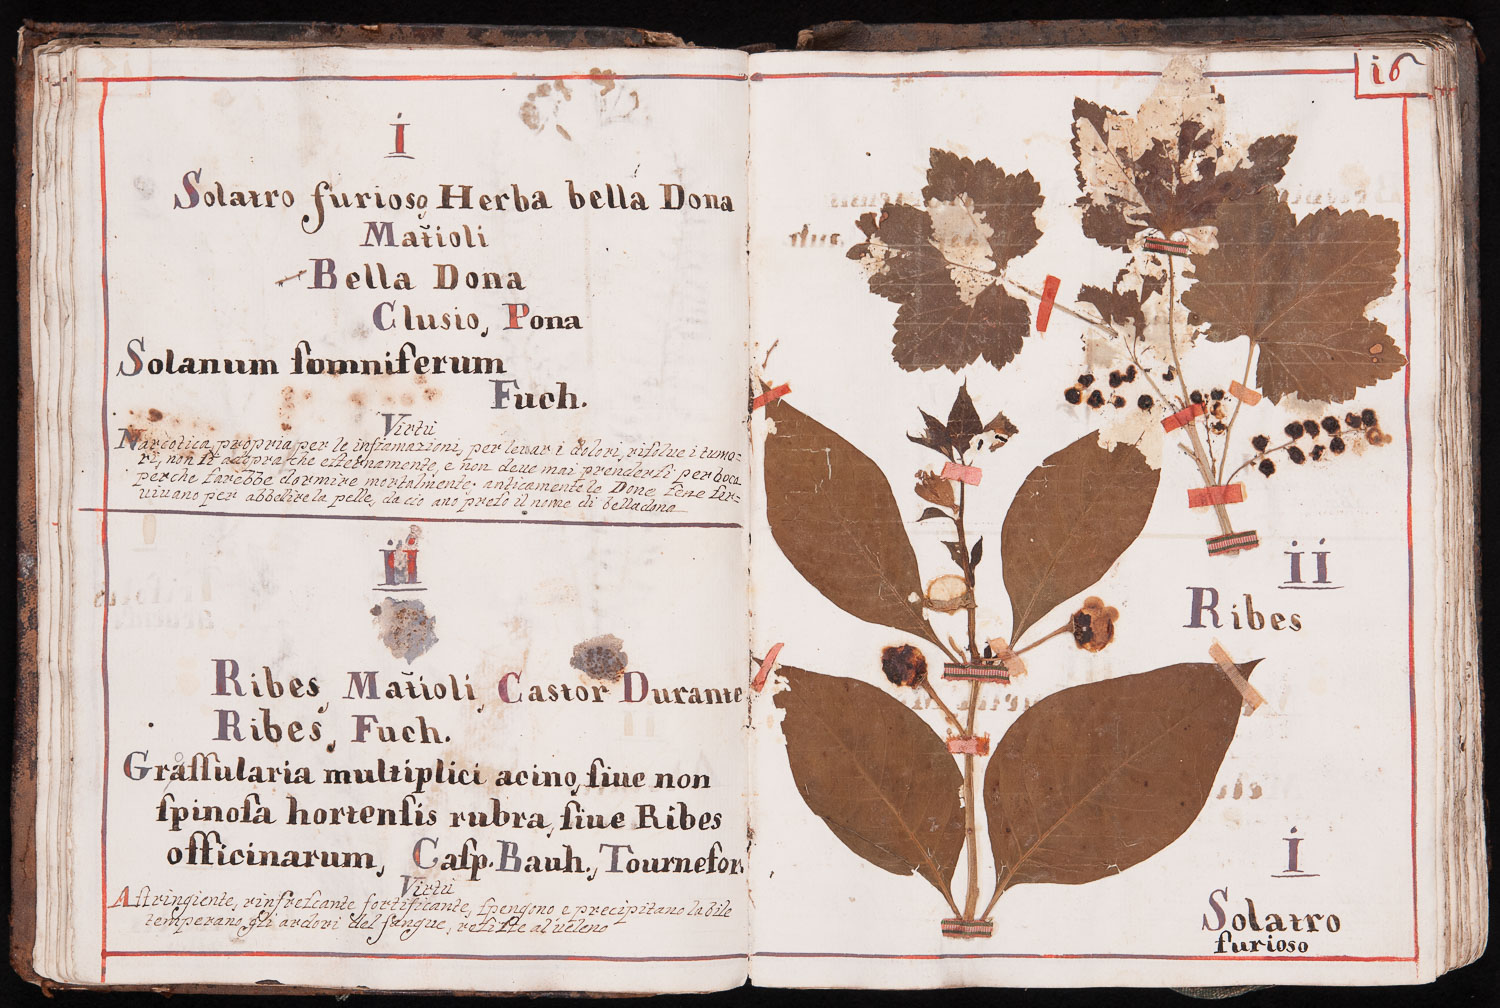 i
Solatro furioso, Herba bella Dona
Matioli
Bella Dona
Clusio, Pona
Solanum ſomniferum
Fuch.
Virtù
Narcotica, propria per le infiamazioni, per levar i dolori, riſolue i tumo=
ri, non ſi adopra che eſternamente, e non deue mai prenderſi per boca
perche farebbe dormire mortalmente. anticamente le Done ſene ſer=
uiuano per abbellire la pelle, da ciò ano preſo il nome di belladona
ii
Ribes, Matioli, Castor Durante
Ribes, Fuch.
Graſſularia multiplici acino, ſiue non
ſpinoſa hortenſis rubra, ſiue Ribes
officinarum, Caſp. Bauh., Tournefor.
Virtù
Aſtringiente, rinfreſcante fortificante, ſpengono e precipitano la bile
temperano gli ardori del ſangue, reſiſte al ueleno
i6
ii
Ribes
i
Solatro
furioso